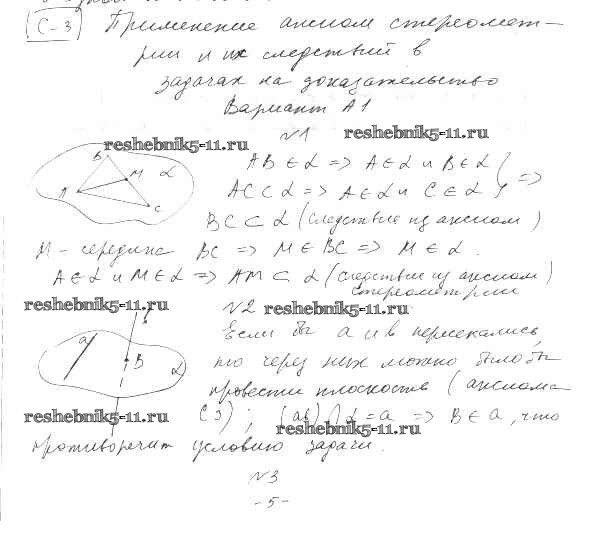 С-3 Применение аксиом стереомет-
рии и их следствий в
задачах на доказательство
Вариант А1
reshebnik5-11.ru
№1 reshebnik5-11.ru
B M α A C
AB ∈ α => A ∈ α и B ∈ α } =>
AC ⊂ α => A ∈ α и C ∈ α
BC ⊂ α (следствие из аксиом)
M - середина BC => M ∈ BC => M ∈ α.
A ∈ α и M ∈ α => AM ⊂ α (следствие из аксиом)
стереометрии
reshebnik5-11.ru №2 reshebnik5-11.ru
a B α
Если бы a и в пересекались,
то через них можно было бы
провести плоскость (аксиома
reshebnik5-11.ru С3); (aв) ∩ α = a => B ∈ a, что
reshebnik5-11.ru
противоречит условию задачи.
№3
-5-